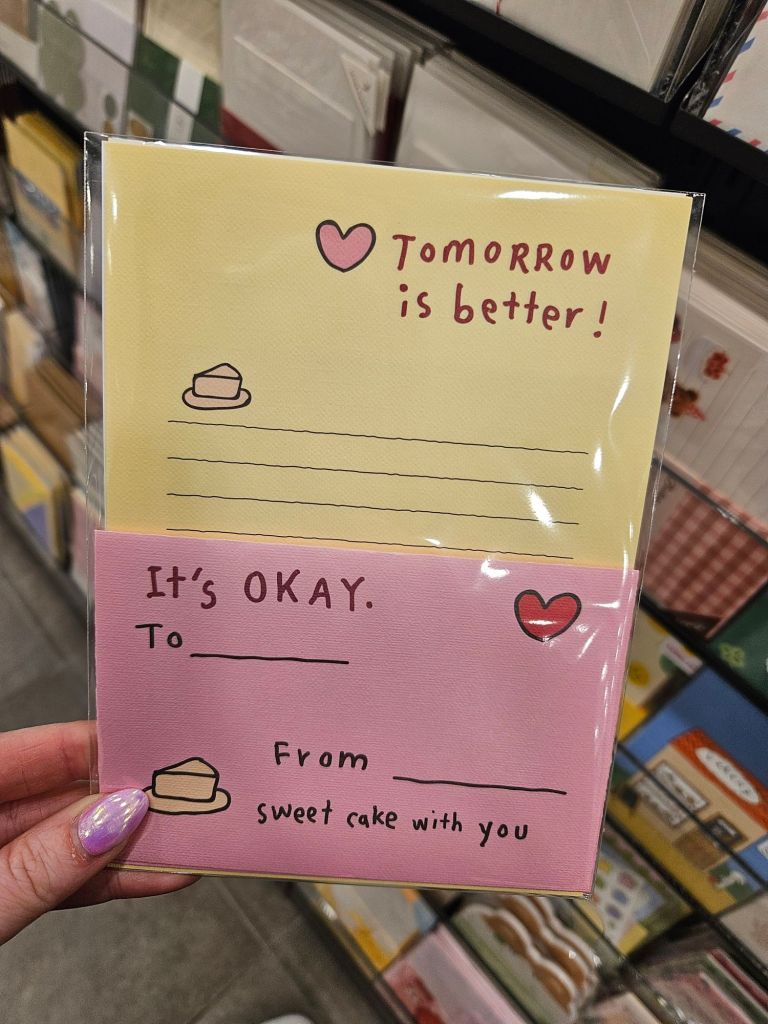 TOMORROW
is better!
It's OKAY.
To
From
sweet cake with you